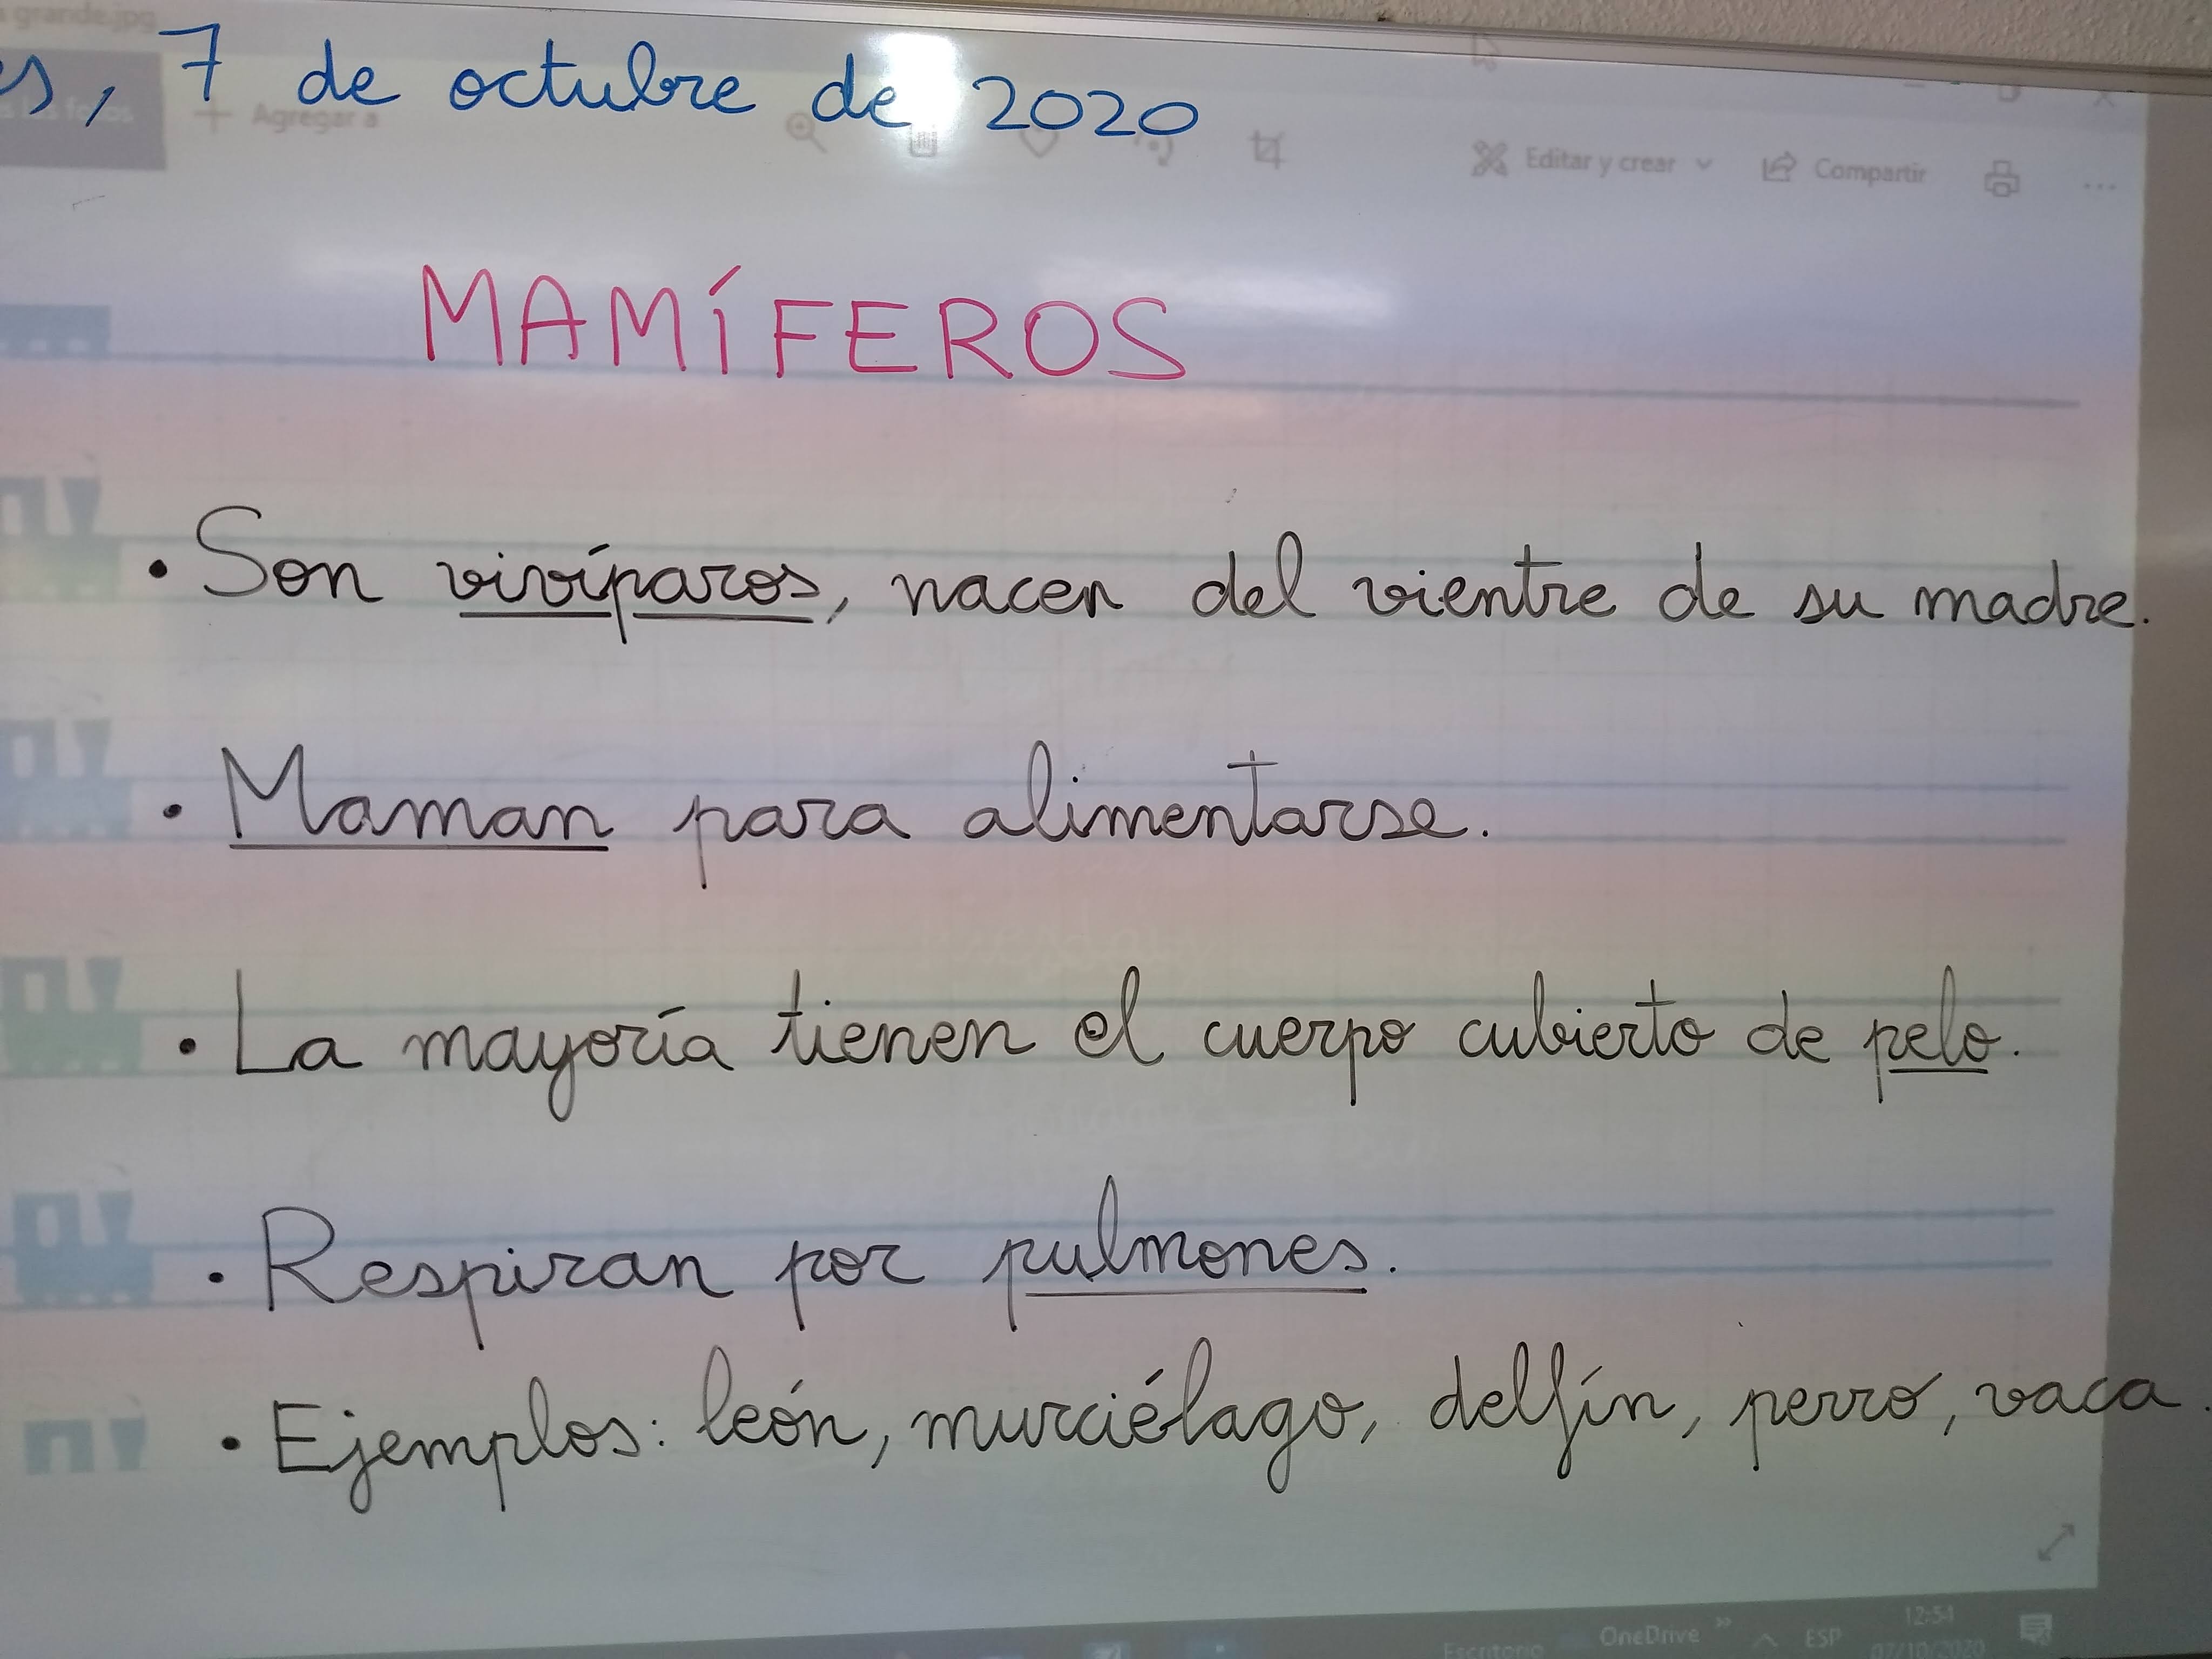 a grande.jpg
s, 7 de octubre de 2020
Agregar a
Editar y crear
Compartir
MAMÍFEROS
• Son vivíparos, nacen del vientre de su madre.
• Maman para alimentarse.
• La mayoría tienen el cuerpo cubierto de pelo.
• Respiran por pulmones.
• Ejemplos: león, murciélago, delfín, perro, vaca.
Escritorio OneDrive » ESP 12:51
07/10/2020